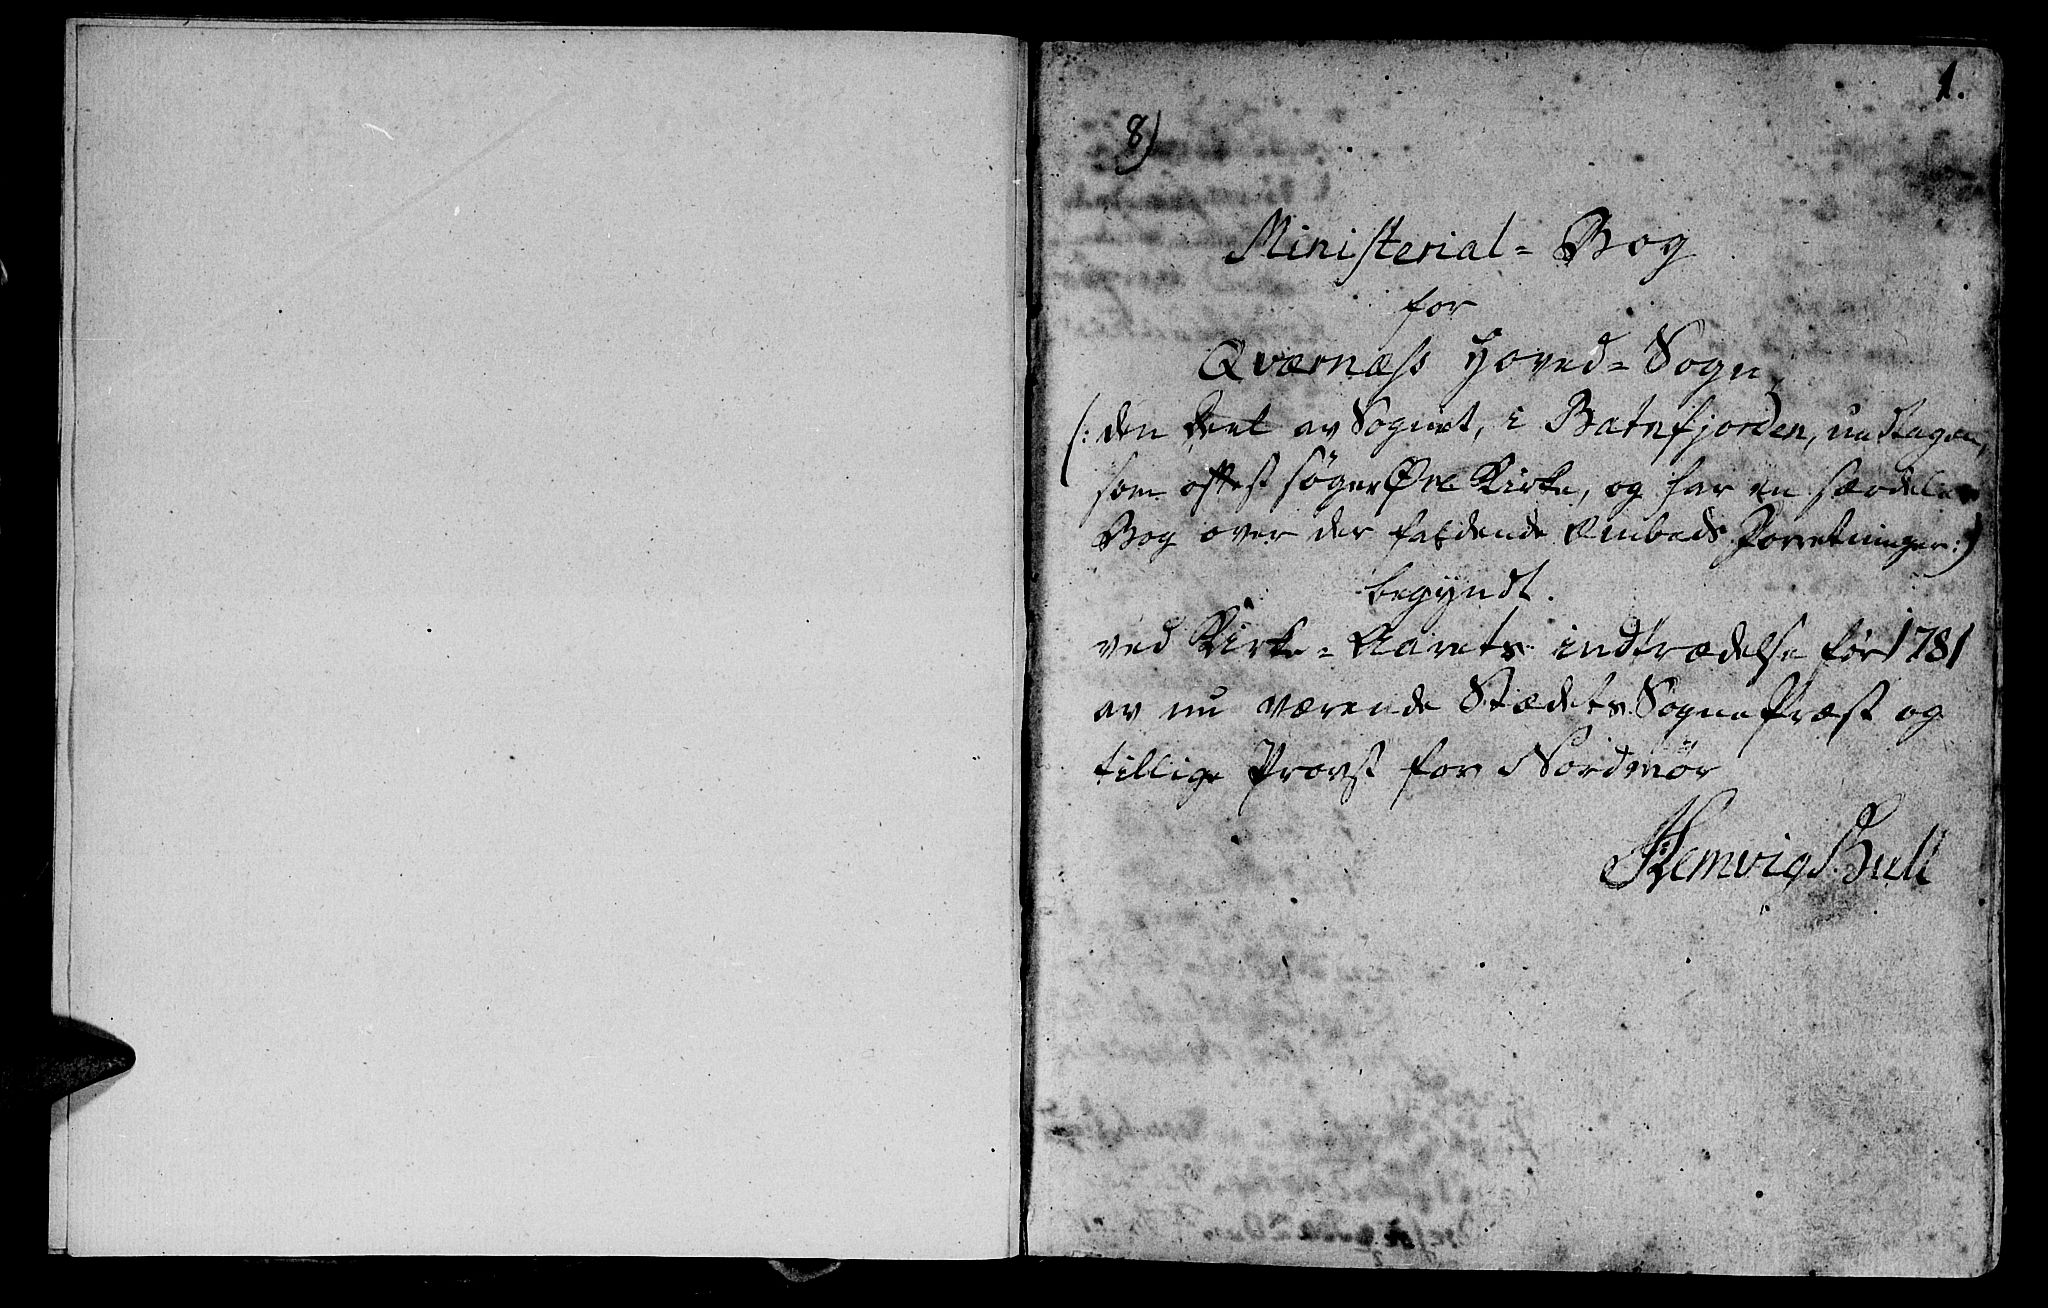 1.
8)
Ministerial=Bog
for
Qværnæss Hoved=Sogn,
(: den Deel av Sognet, i Batnfjorden, undtagen,
som oftest søger Øre Kirke, og har en særdeles
Bog over der faldende Embeds Forretninger :)
begyndt.
ved Kirke=Aarets indtrædelse for 1781
av nu værende Stædets SognePræst og
tillige Provst for Nordmør
Hemvig S. Bull